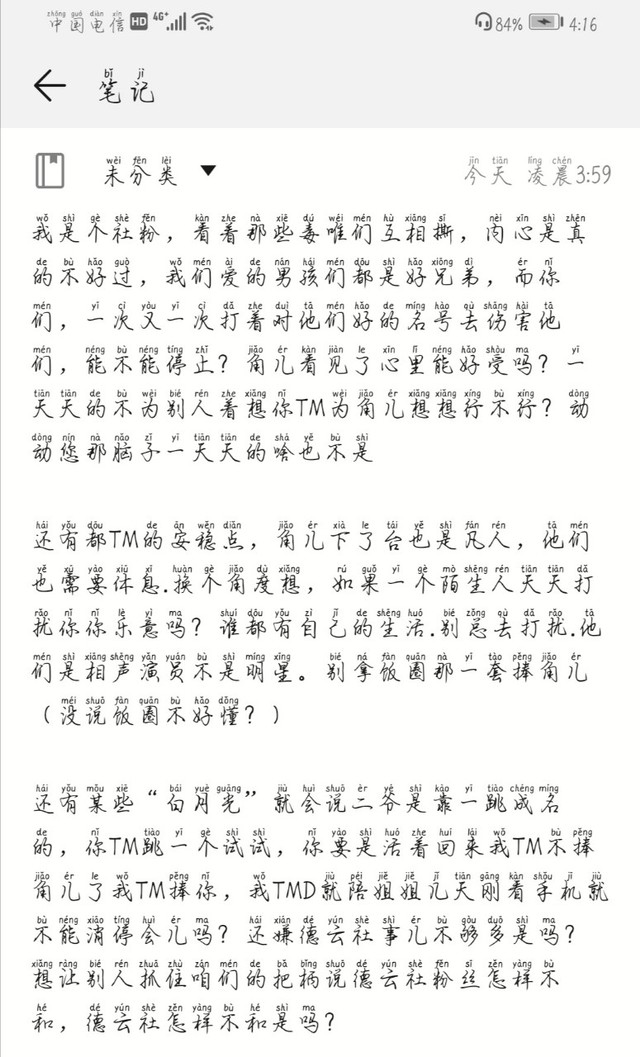 中国电信 HD 4G+ 84% 4:16
笔记
未分类 今天 凌晨3:59
我是个社粉，看着那些毒唯们互相撕，内心是真
的不好过，我们爱的男孩们都是好兄弟，而你
们，一次又一次打着对他们好的名号去伤害他
们，能不能停止？角儿看见了心里能好受吗？一
天天的不为别人着想你TM为角儿想想行不行？动
动您那脑子一天天的啥也不是
还有都TM的安稳点，角儿下了台也是凡人，他们
也需要休息.换个角度想，如果一个陌生人天天打
扰你你乐意吗？谁都有自己的生活.别总去打扰.他
们是相声演员不是明星。别拿饭圈那一套捧角儿
（没说饭圈不好懂？）
还有某些“白月光”就会说二爷是靠一跳成名
的，你TM跳一个试试，你要是活着回来我TM不捧
角儿了我TM捧你，我TMD就陪姐姐几天刚看手机就
不能消停会儿吗？还嫌德云社事儿不够多是吗？
想让别人抓住咱们的把柄说德云社粉丝怎样不
和，德云社怎样不和是吗？